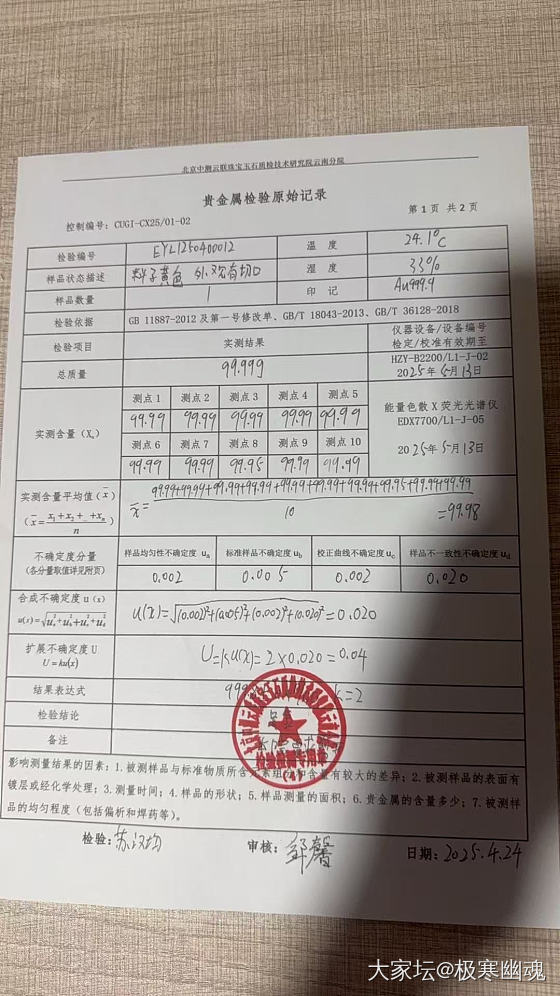 北京中测云联珠宝玉石质检技术研究院云南分院
贵金属检验原始记录
控制编号：CUGI-CX25/01-02
第 1 页 共 2 页
检验编号 EYL1250400012 温 度 24.1℃
样品状态描述 料子黄色 外观有切口 湿 度 33%
样品数量 1 印 记 Au999.9
检验依据 GB 11887-2012 及第一号修改单、GB/T 18043-2013、GB/T 36128-2018
检验项目 实测结果 仪器设备/设备编号
检定/校准有效期至
总质量 99.999 HZY-B2200/L1-J-02
2025年5月13日
实测含量（Xₙ）
测点 1 测点 2 测点 3 测点 4 测点 5
99.99 99.99 99.99 99.99 99.99
测点 6 测点 7 测点 8 测点 9 测点 10
99.99 99.99 99.95 99.99 99.99
能量色散 X 荧光光谱仪
EDX7700/L1-J-05
2025年5月13日
实测含量平均值（x̄）
（x̄=x₁+x₂+…+xₙ/n）
x̄=99.99+99.99+99.99+99.99+99.99+99.99+99.99+99.95+99.99+99.99/10=99.98
不确定度分量
（各分量取值详见附页）
样品均匀性不确定度 uₐ 标准样品不确定度 u_b 校正曲线不确定度 u_c 样品不一致性不确定度 u_d
0.002 0.005 0.002 0.020
合成不确定度 u（x）
u(x)=√uₐ²+u_b²+u_c²+u_d²
u(x)=√(0.002)²+(0.005)²+(0.002)²+(0.020)²=0.020
扩展不确定度 U
U=ku(x)
U=ku(x)=2×0.020=0.04
结果表达式 k=2
检验结论
备注
检验检测专用章
影响测量结果的因素：1.被测样品与标准物质所含元素组成和含量有较大的差异；2.被测样品的表面有
镀层或经化学处理；3.测量时间；4.样品的形状；5.样品测量的面积；6.贵金属的含量多少；7.被测样
品的均匀程度（包括偏析和焊药等）。
检验：苏汉均 审核：邹馨 日期：2025.4.24
大家坛@极寒幽魂